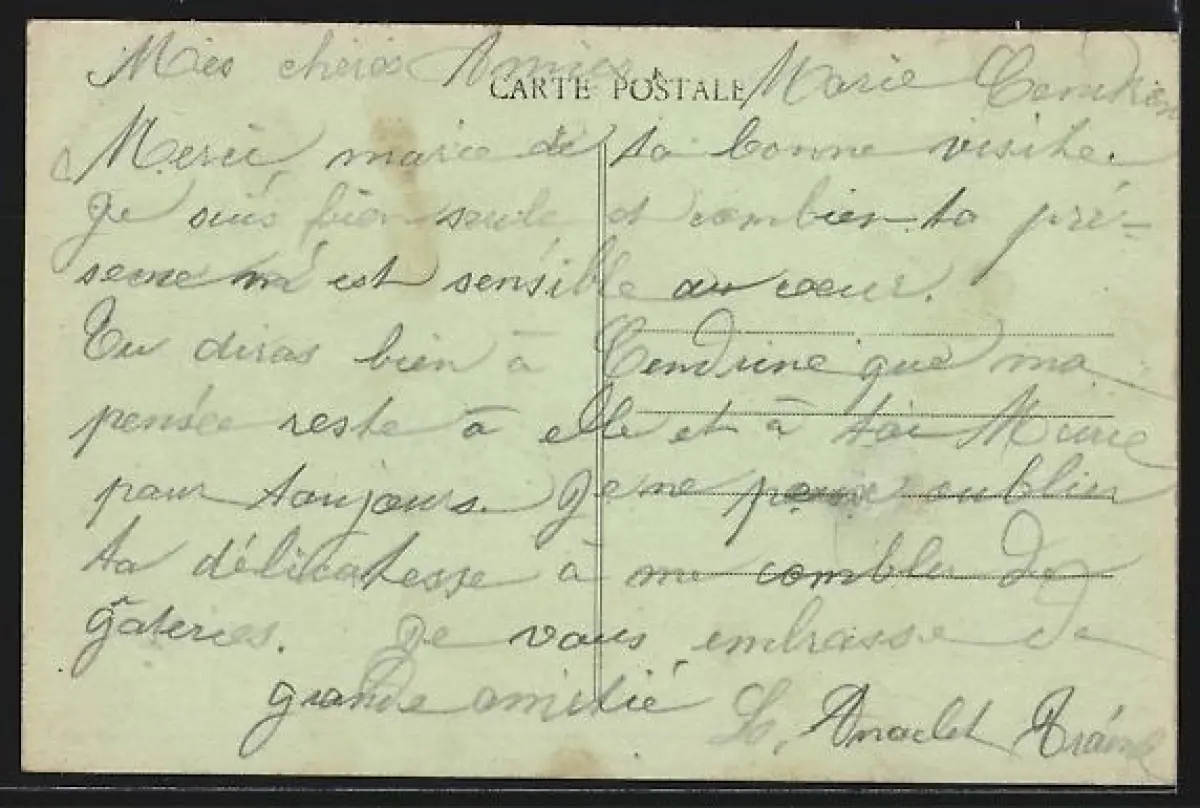 Mes chéres Amies Marie
CARTE POSTALE
Merci marie de ta bonne visite.
Je suis bien seule et combien ta pré-
sence m'est sensible au cœur.
Tu diras bien à Cendrine que ma
pensée reste à elle et à toi Marie
pour toujours. Je ne peux oublier
ta délicatesse à me combler de
gâteries. Je vous embrasse de
grande amitié Anaclet